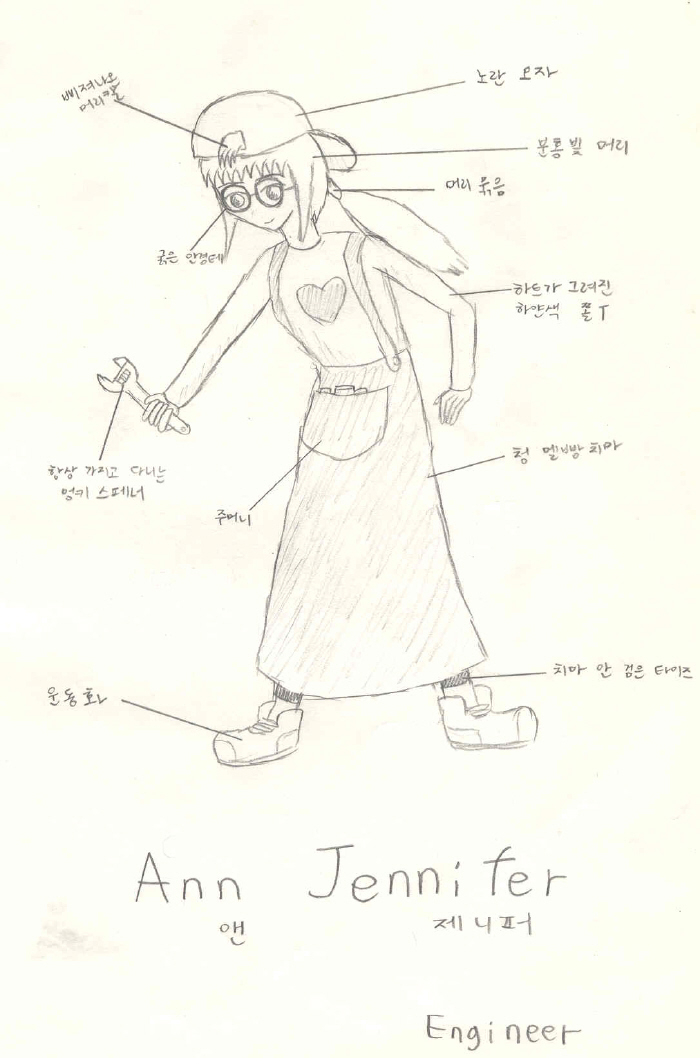 노란 모자
삐져나온
머리카락
분홍빛 머리
머리 묶음
굵은 안경테
하트가 그려진
하얀색 쫄T
청 멜빵 치마
항상 가지고 다니는
멍키 스페너
주머니
치마 안 검은 타이즈
운동화
Ann Jennifer
앤 제니퍼
Engineer